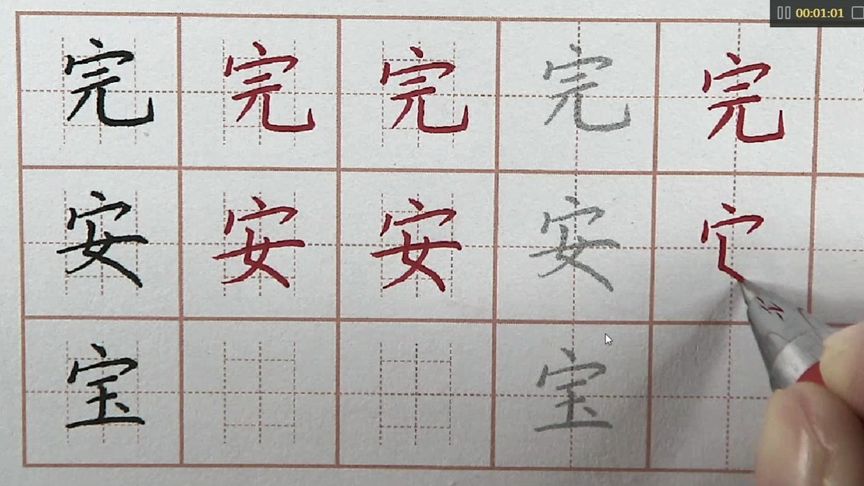 00:01:01
完 完 完 完 完
安 安 安 安
宝 宝